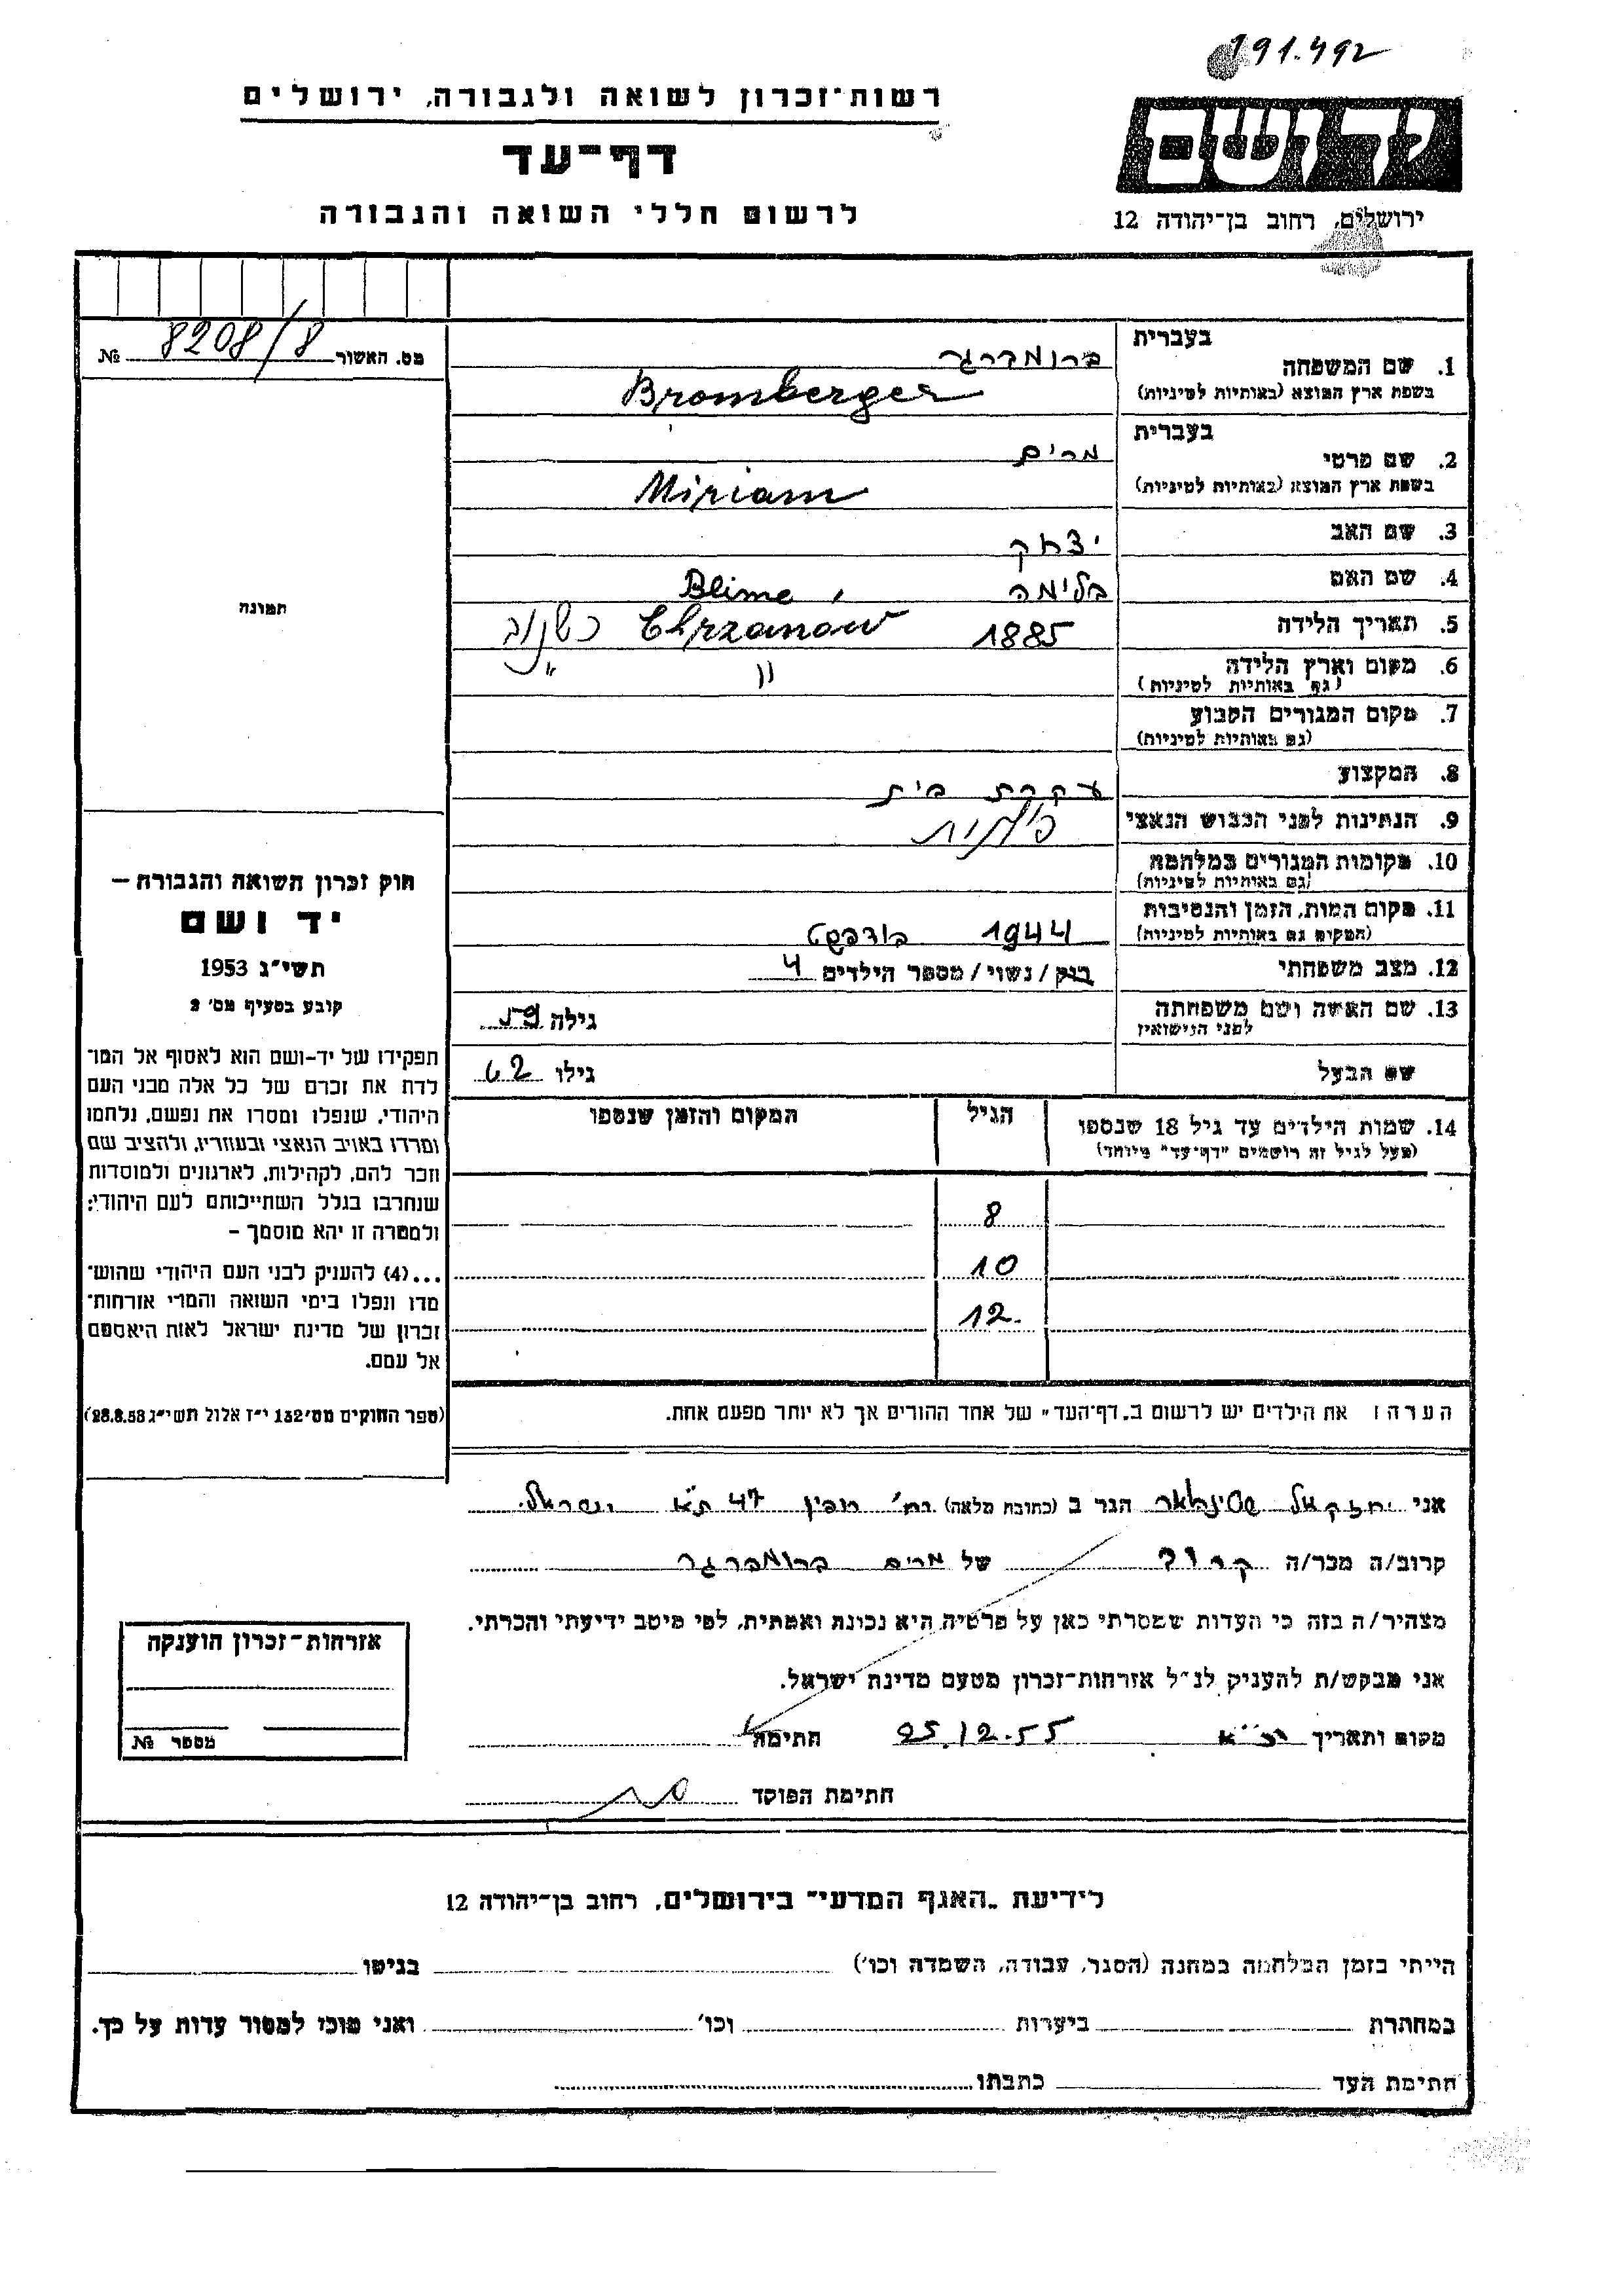 191.492
רשות־זכרון לשואה ולגבורה, ירושלים
דף־עד
לרשום חללי השואה והגבורה
יד ושם
ירושלים, רחוב בן־יהודה 12
מס. האשור 8208/8 №
תמונה
חוק זכרון השואה והגבורה –
יד ושם
תשי״ג 1953
קובע בסעיף מס׳ 2
תפקידו של יד-ושם הוא לאסוף אל המו־
לדת את זכרם של כל אלה מבני העם
היהודי, שנפלו ומסרו את נפשם, נלחמו
ומרדו באויב הנאצי ובעוזריו, ולהציב שם
וזכר להם, לקהילות, לארגונים ולמוסדות
שנחרבו בגלל השתייכותם לעם היהודי;
ולמטרה זו יהא מוסמך –
...(4) להעניק לבני העם היהודי שהוש־
מדו ונפלו בימי השואה והמרי אזרחות־
זכרון של מדינת ישראל לאות היאספם
אל עמם.
(ספר החוקים מס׳ 132 י״ז אלול תשי״ג 28.8.53)
1. שם המשפחה בעברית ברומברגר
בשפת ארץ המוצא (באותיות לטיניות) Bromberger
2. שם פרטי בעברית מרים
בשפת ארץ המוצא (באותיות לטיניות) Miriam
3. שם האב יצחק
4. שם האם בלימה, Blime
5. תאריך הלידה 1885 Chrzanow כשנוב
6. מקום וארץ הלידה " "
(גם באותיות לטיניות)
7. מקום המגורים הקבוע
(גם באותיות לטיניות)
8. המקצוע עקרת בית
9. הנתינות לפני הכבוש הנאצי פולנית
10. מקומות המגורים במלחמה
(גם באותיות לטיניות)
11. מקום המות, הזמן והנסיבות 1944 בודפשט
(המקום גם באותיות לטיניות)
12. מצב משפחתי רווק / נשוי / מספר הילדים 4
13. שם האשה ושם משפחתה גילה 59
לפני הנישואין
שם הבעל גילו 62
14. שמות הילדים עד גיל 18 שנספו הגיל המקום והזמן שנספו
(מעל לגיל זה רושמים "דף־עד" מיוחד)
8
10
12.
הערה: את הילדים יש לרשום ב„דף־העד" של אחד ההורים אך לא יותר מפעם אחת.
אני יחזקאל הגר ב (כתובת מלאה) רח׳ 47 ת״א ישראל.
קרוב/ה מכר/ה קרוב של מרים ברומברגר
מצהיר/ה בזה כי העדות שמסרתי כאן על פרטיה היא נכונה ואמתית, לפי מיטב ידיעתי והכרתי.
אני מבקש/ת להעניק לנ״ל אזרחות־זכרון מטעם מדינת ישראל.
מקום ותאריך 25.12.55 חתימה
חתימת הפוקד
אזרחות־זכרון הוענקה
מספר №
לידיעת „האגף המדעי" בירושלים, רחוב בן־יהודה 12
הייתי בזמן המלחמה במחנה (הסגר, עבודה, השמדה וכו׳) בגיטו
במחתרת ביערות וכו׳ ואני מוכן למסור עדות על כך.
חתימת העד כתבתו